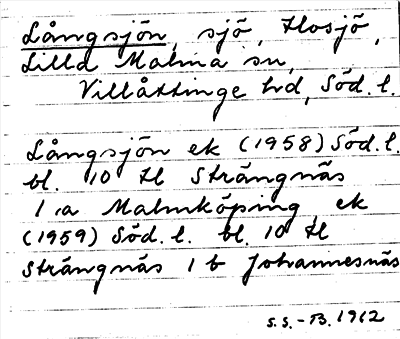 Långsjön, sjö, Flosjö,
Lilla Malma sn,
Villåttinge hd, Söd. l.
Långsjön ek (1958) Söd. l.
bl. 10 tl Strängnäs
1 a Malmköping, ek
(1959) Söd. l. bl. 10 tl
Strängnäs 1 b Johannesnäs
S.S.-B. 1962